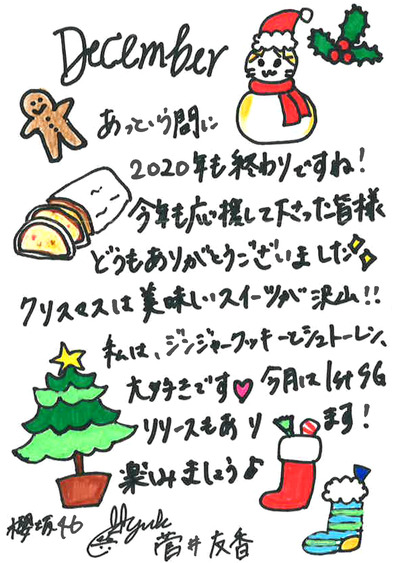 December
あっという間に
2020年も終わりですね!
今年も応援して下さった皆様
どうもありがとうございました
クリスマスは美味しいスイーツが沢山!!
私は、ジンジャークッキーとシュトーレン、
大好きです♥ 今月は1st SG
リリースもあります!
楽しみましょう♪
櫻坂46 菅井友香